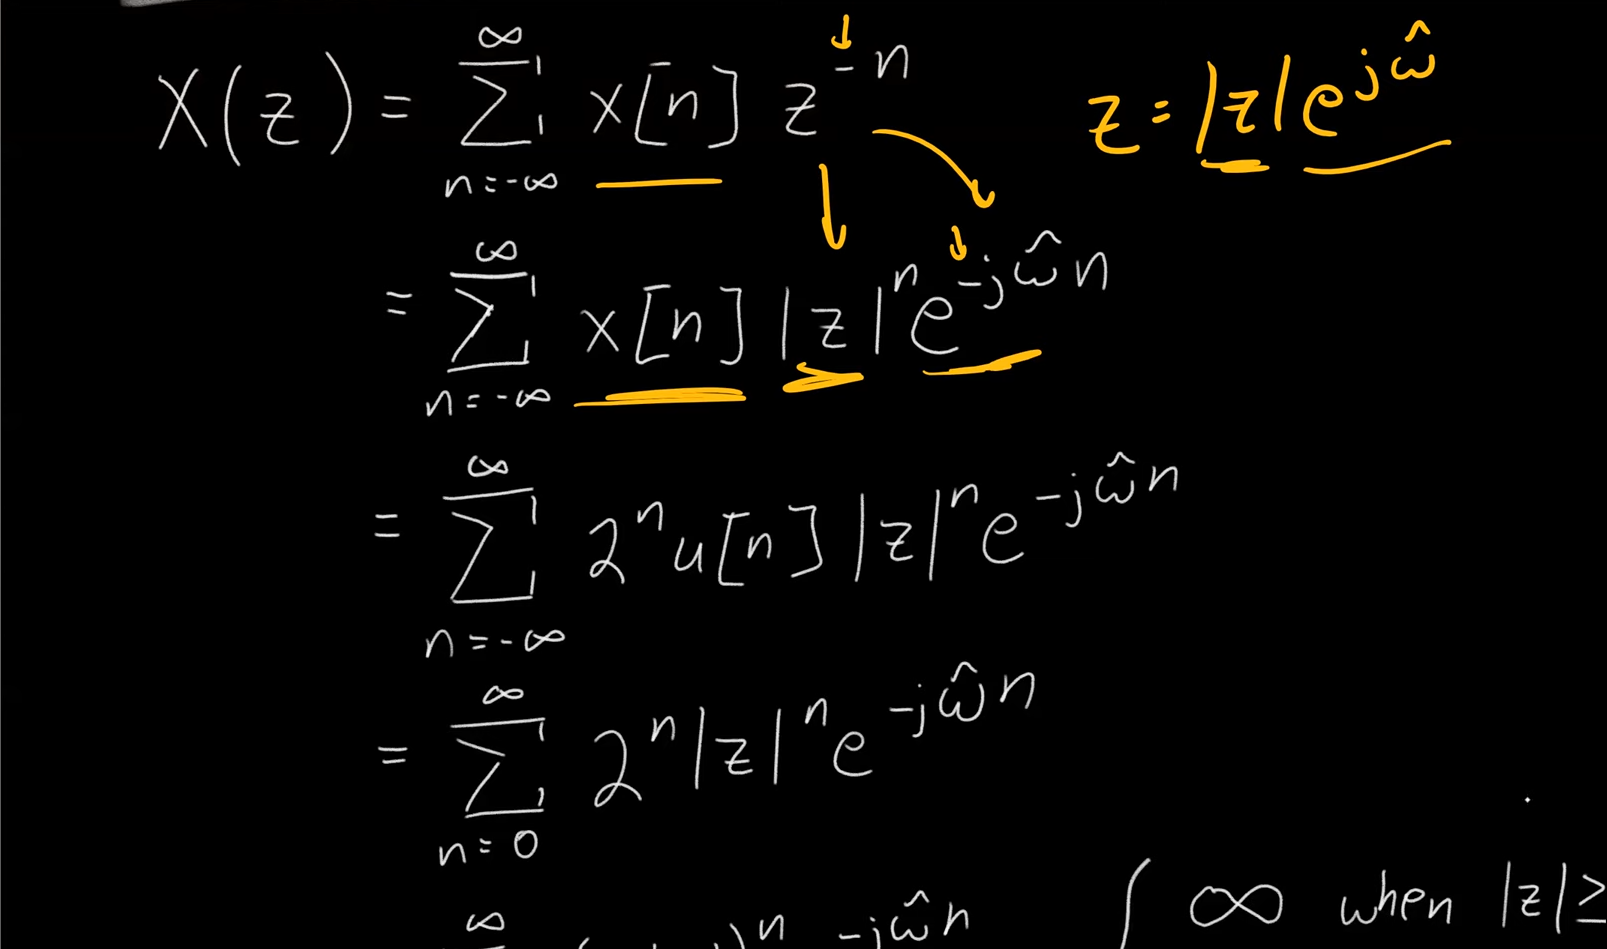 X(z) = ∑_{n=-∞}^{∞} x[n] z^{-n}    z = |z| e^{jω̂}
= ∑_{n=-∞}^{∞} x[n] |z|^n e^{-jω̂n}
= ∑_{n=-∞}^{∞} 2^n u[n] |z|^n e^{-jω̂n}
= ∑_{n=0}^{∞} 2^n |z|^n e^{-jω̂n}
∞ )^n -jω̂n    ∞ when |z| ≥